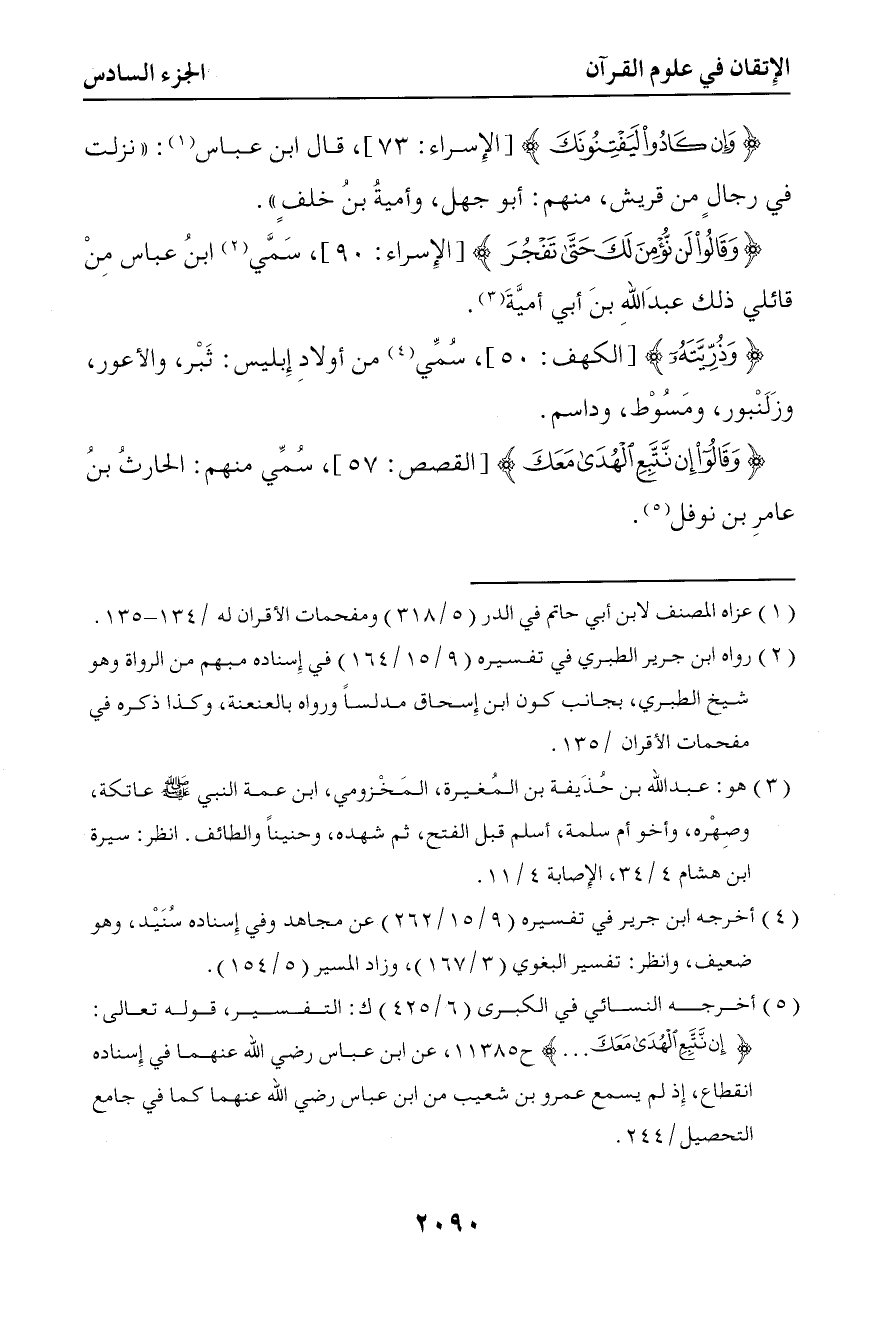 الإتقان في علوم القرآن
الجزء السادس
﴿ وَإِن كَادُوا۟ لَيَفْتِنُونَكَ ﴾ [الإسراء: ٧٣]، قال ابن عباس(١): «نزلت
في رجالٍ من قريش، منهم: أبو جهل، وأميةُ بنُ خلفٍ».
﴿ وَقَالُوا۟ لَن نُّؤْمِنَ لَكَ حَتَّىٰ تَفْجُرَ ﴾ [الإسراء: ٩٠]، سَمَّي(٢) ابنُ عباس مِنْ
قائلي ذلك عبدَاللهِ بنَ أبي أميَّةَ(٣).
﴿ وَذُرِّيَّتَهُۥٓ ﴾ [الكهف: ٥٠]، سُمِّي(٤) من أولادِ إبليس: ثَبْر، والأعور،
وزلَنْبور، ومَسُوْط، وداسم.
﴿ وَقَالُوٓا۟ إِن نَّتَّبِعِ ٱلْهُدَىٰ مَعَكَ ﴾ [القصص: ٥٧]، سُمِّي منهم: الحارثُ بنُ
عامرِ بن نوفل(٥).
(١) عزاه المصنف لابن أبي حاتم في الدر (٣١٨/٥) ومفحمات الأقران له /١٣٤–١٣٥.
(٢) رواه ابن جرير الطبري في تفسيره (١٦٤/١٥/٩) في إسناده مبهم من الرواة وهو
شيخ الطبري، بجانب كون ابن إسحاق مدلساً ورواه بالعنعنة، وكذا ذكره في
مفحمات الأقران /١٣٥.
(٣) هو: عبدالله بن حُذَيفة بن المُغيرة، المَخْزومي، ابن عمة النبي ﷺ عاتكة،
وصِهْره، وأخو أم سلمة، أسلم قبل الفتح، ثم شهده، وحنيناً والطائف. انظر: سيرة
ابن هشام ٣٤/٤، الإصابة ١١/٤.
(٤) أخرجه ابن جرير في تفسيره (٢٦٢/١٥/٩) عن مجاهد وفي إسناده سُنَيْد، وهو
ضعيف، وانظر: تفسير البغوي (١٦٧/٣)، وزاد المسير (١٥٤/٥).
(٥) أخرجه النسائي في الكبرى (٤٢٥/٦) ك: التفسير، قوله تعالى:
﴿ إِن نَّتَّبِعِ ٱلْهُدَىٰ مَعَكَ ... ﴾ ح١١٣٨٥، عن ابن عباس رضي الله عنهما في إسناده
انقطاع، إذ لم يسمع عمرو بن شعيب من ابن عباس رضي الله عنهما كما في جامع
التحصيل/٢٤٤.
٢٠٩٠